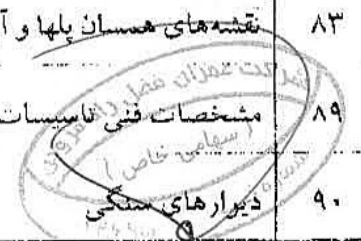 ۸۳ نقشه‌های همسان پلها و آ
۸۹ مشخصات فنی تاسیسات
۹۰ دیوارهای سنگی
شرکت عمران فضل
(سهامی خاص)